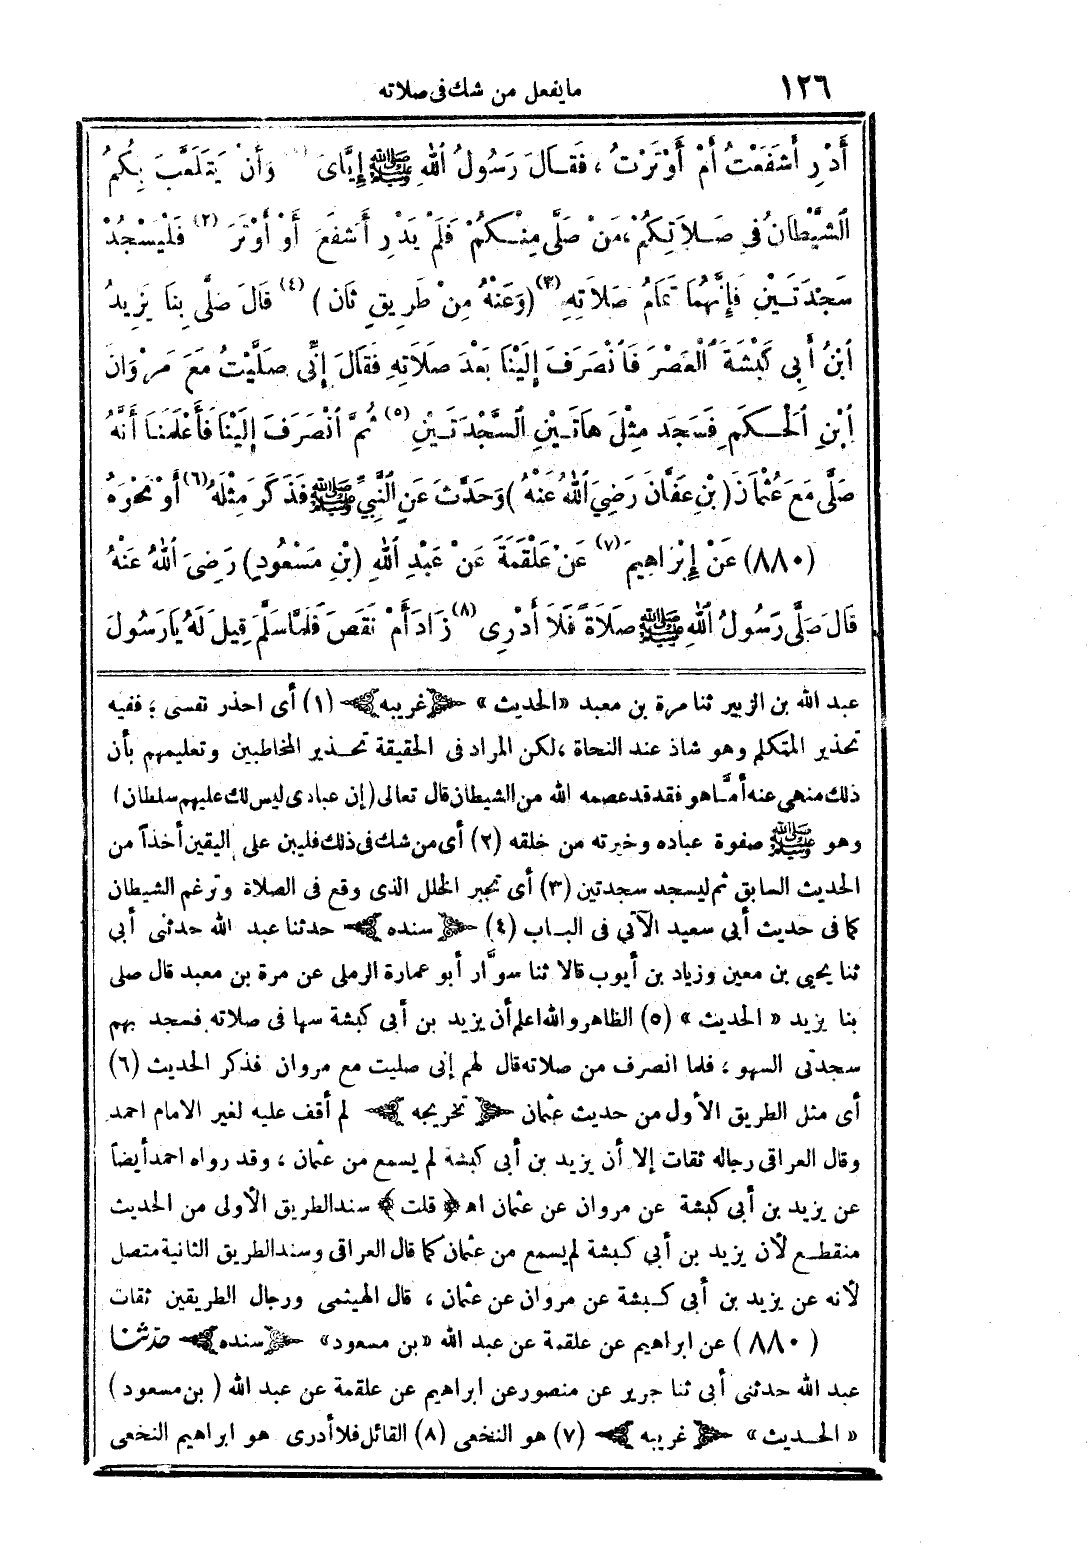 ١٢٦ ما يفعل من شك في صلاته
أَدْرِ أَشَفَعْتُ أَمْ أَوْتَرْتُ ، فَقَالَ رَسُولُ اللهِ ﷺ إِيَّاىَ وَأَنْ يَتَلَعَّبَ بِكُمُ
الشَّيْطَانُ فِي صَلاَتِكُمْ ،مَنْ صَلَّى مِنْكُمْ فَلَمْ يَدْرِ أَشَفَعَ أَوْ أَوْتَرَ (٢) فَلْيَسْجُدْ
سَجْدَتَيْنِ فَإِنَّهُمَا تَمَامُ صَلاَتِهِ (٣) (وَعَنْهُ مِنْ طَرِيقٍ ثَانٍ) (٤) قَالَ صَلَّى بِنَا يَزِيدُ
ابْنُ أَبِي كَبْشَةَ الْعَصْرَ فَانْصَرَفَ إِلَيْنَا بَعْدَ صَلاَتِهِ فَقَالَ إِنِّي صَلَّيْتُ مَعَ مَرْوَانَ
ابْنِ الْحَكَمِ فَسَجَدَ مِثْلَ هَاتَيْنِ السَّجْدَتَيْنِ (٥) ثُمَّ انْصَرَفَ إِلَيْنَا فَأَعْلَمَنَا أَنَّهُ
صَلَّى مَعَ عُثْمَانَ (بْنِ عَفَّانَ رَضِيَ اللهُ عَنْهُ) وَحَدَّثَ عَنِ النَّبِيِّ ﷺ فَذَكَرَ مِثْلَهُ (٦) أَوْ نَحْوَهُ
(٨٨٠) عَنْ إِبْرَاهِيمَ (٧) عَنْ عَلْقَمَةَ عَنْ عَبْدِ اللهِ (بْنِ مَسْعُودٍ) رَضِيَ اللهُ عَنْهُ
قَالَ صَلَّى رَسُولُ اللهِ ﷺ صَلاَةً فَلاَ أَدْرِى (٨) زَادَ أَمْ نَقَصَ فَلَمَّا سَلَّمَ قِيلَ لَهُ يَا رَسُولَ
عبد الله بن الزبير ثنا مرة بن معبد «الحديث» ﴿غريبه﴾ (١) أى احذر نفسى ؛ ففيه
تحذير المتكلم وهو شاذ عند النحاة ،لكن المراد فى الحقيقة تحـذير المخاطبين وتعليمهم بأن
ذلك منهى عنه أمَّا هو فقد قد عصمه الله من الشيطان قال تعالى (إن عبادى ليس لك عليهم سلطان)
وهو ﷺ صفوة عباده وخيرته من خلقه (٢) أى من شك فى ذلك فليبن على اليقين أخذاً من
الحديث السابق ثم ليسجد سجدتين (٣) أى تجبر الخلل الذى وقع فى الصلاة وترغم الشيطان
كما فى حديث أبى سعيد الآتى فى البـاب (٤) ﴿سنده﴾ حدثنا عبد الله حدثنى أبي
ثنا يحيى بن معين وزياد بن أيوب قالا ثنا سوَّار أبو عمارة الرملى عن مرة بن معبد قال صلى
بنا يزيد «الحديث» (٥) الظاهر والله اعلم أن يزيد بن أبى كبشة سها فى صلاته فسجد بهم
سجدتى السهو ، فلما انصرف من صلاته قال لهم إنى صليت مع مروان فذكر الحديث (٦)
أى مثل الطريق الأول من حديث عثمان ﴿تخريجه﴾ لم أقف عليه لغير الامام احمد
وقال العراقى رجاله ثقات إلا أن يزيد بن أبى كبشة لم يسمع من عثمان ، وقد رواه احمد أيضاً
عن يزيد بن أبى كبشة عن مروان عن عثمان اه ﴿قلت﴾ سند الطريق الأولى من الحديث
منقطـع لأن يزيد بن أبى كبشة لم يسمع من عثمان كما قال العراقى وسند الطريق الثانية متصل
لأنه عن يزيد بن أبى كبشة عن مروان عن عثمان ، قال الهيثمى ورجال الطريقين ثقات
(٨٨٠) عن ابراهيم عن علقمة عن عبد الله «بن مسعود» ﴿سنده﴾ حدثنا
عبد الله حدثنى أبى ثنا جرير عن منصور عن ابراهيم عن علقمة عن عبد الله (بن مسعود)
«الحـديث» ﴿غريبه﴾ (٧) هو النخعى (٨) القائل فلا أدرى هو ابراهيم النخعى